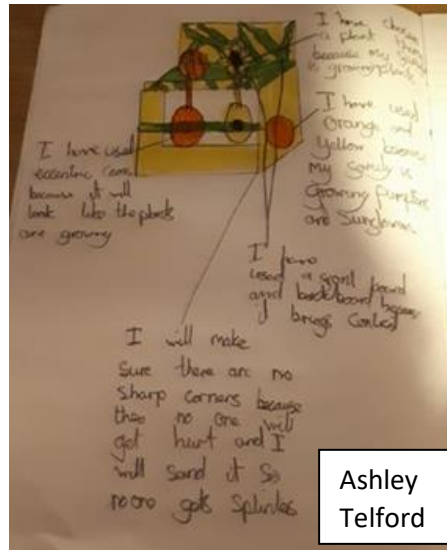 I have chosen
a plant theme
because my
is growing plants
I have used
orange and
yellow because
my is
Growing Pumpkins
are Sunflowers
I have used
eccentric cams
because it will
look like the plants
are growing
I have
used a front board
and backboard because
it brings
I will make
sure there are no
sharp corners because
then no one will
get hurt and I
will sand it so
no one gets splinters
Ashley
Telford